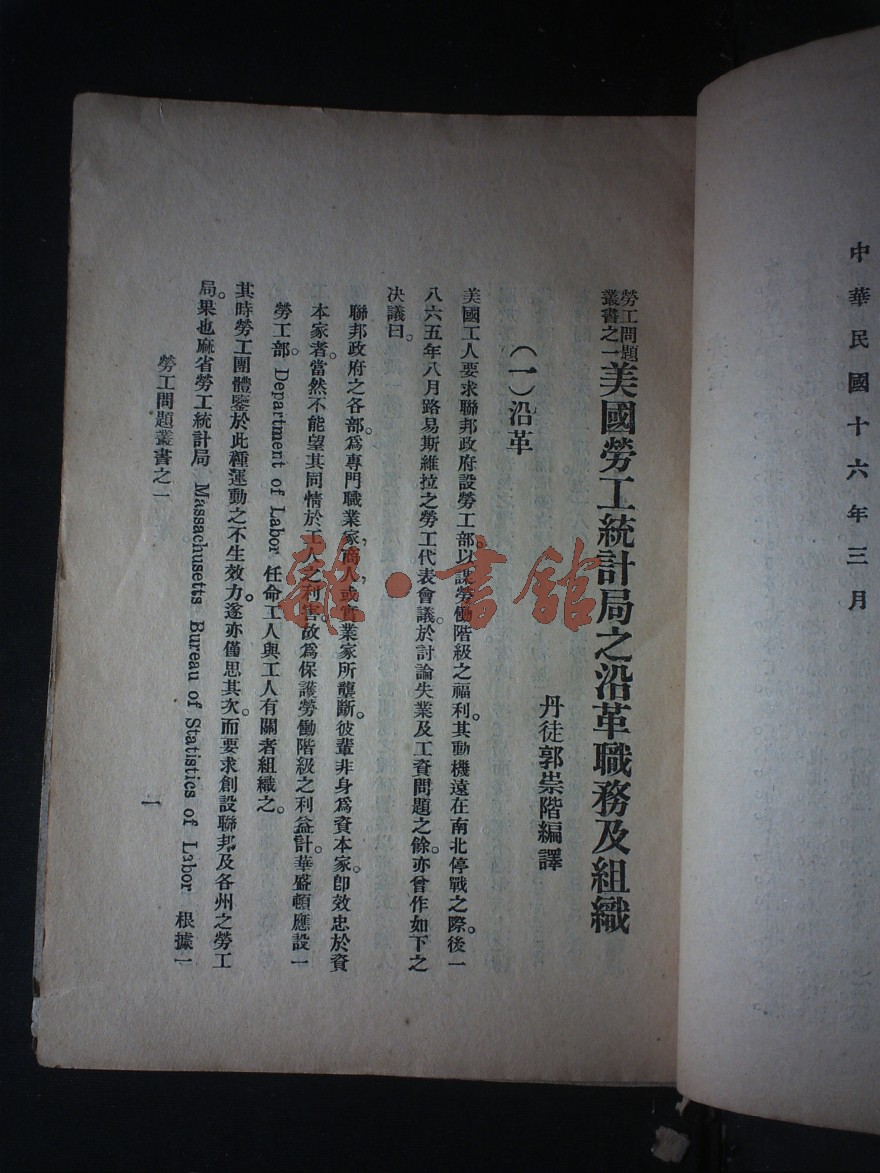 中華民國十六年三月
勞工問題
叢書之一
美國勞工統計局之沿革職務及組織
丹徒郭崇階編譯
（一）沿革
美國工人要求聯邦政府設勞工部以謀勞働階級之福利。其動機遠在南北停戰之際。後一
八六五年八月路易斯維拉之勞工代表會議。於討論失業及工資問題之餘。亦曾作如下之
決議曰。
聯邦政府之各部。爲專門職業家，商人，或實業家所壟斷。彼輩非身爲資本家。卽效忠於資
本家者。當然不能望其同情於工人之利害。故爲保護勞働階級之利益計。華盛頓應設一
勞工部。Department of Labor 任命工人與工人有關者組織之。
其時勞工團體鑒於此種運動之不生效力。遂亦僅思其次。而要求創設聯邦及各州之勞工
局。果也麻省勞工統計局 Massachusetts Bureau of Statistics of Labor 根據一
勞工問題叢書之一
一
雜·書館